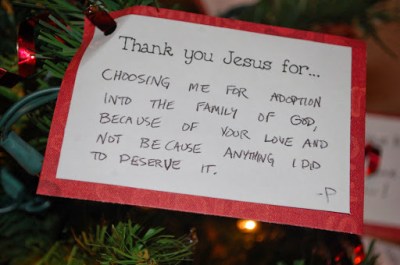 Thank you Jesus for...
CHOOSING ME FOR ADOPTION
INTO THE FAMILY OF GOD,
BECAUSE OF YOUR LOVE AND
NOT BECAUSE ANYTHING I DID
TO DESERVE IT.
-P